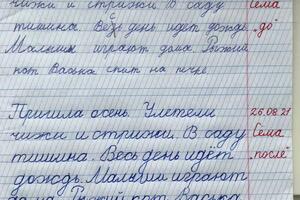 чижи и стрижи В саду Сема
тишина. Весь день идет дождь "до"
Малыши играют дома Рыжий
кот Васька спит на печке
Пришла осень. Улетели 26.08.21
чижи и стрижи. В саду Сема
тишина. Весь день идёт "после"
дождь. Малыши играют
дома Рыжий кот Васька